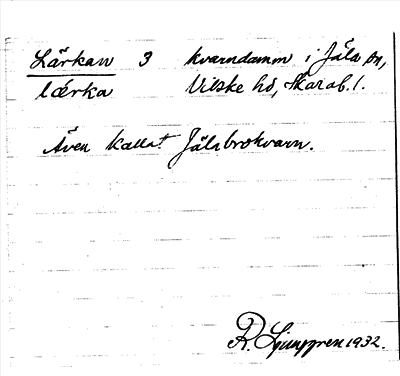 Lärkan 3 kvarndamm i Jäla sn,
lærka Vilske hd, Skarab. l.
Även kallat Jälabrokvarn.
R. Ljunggren 1932.